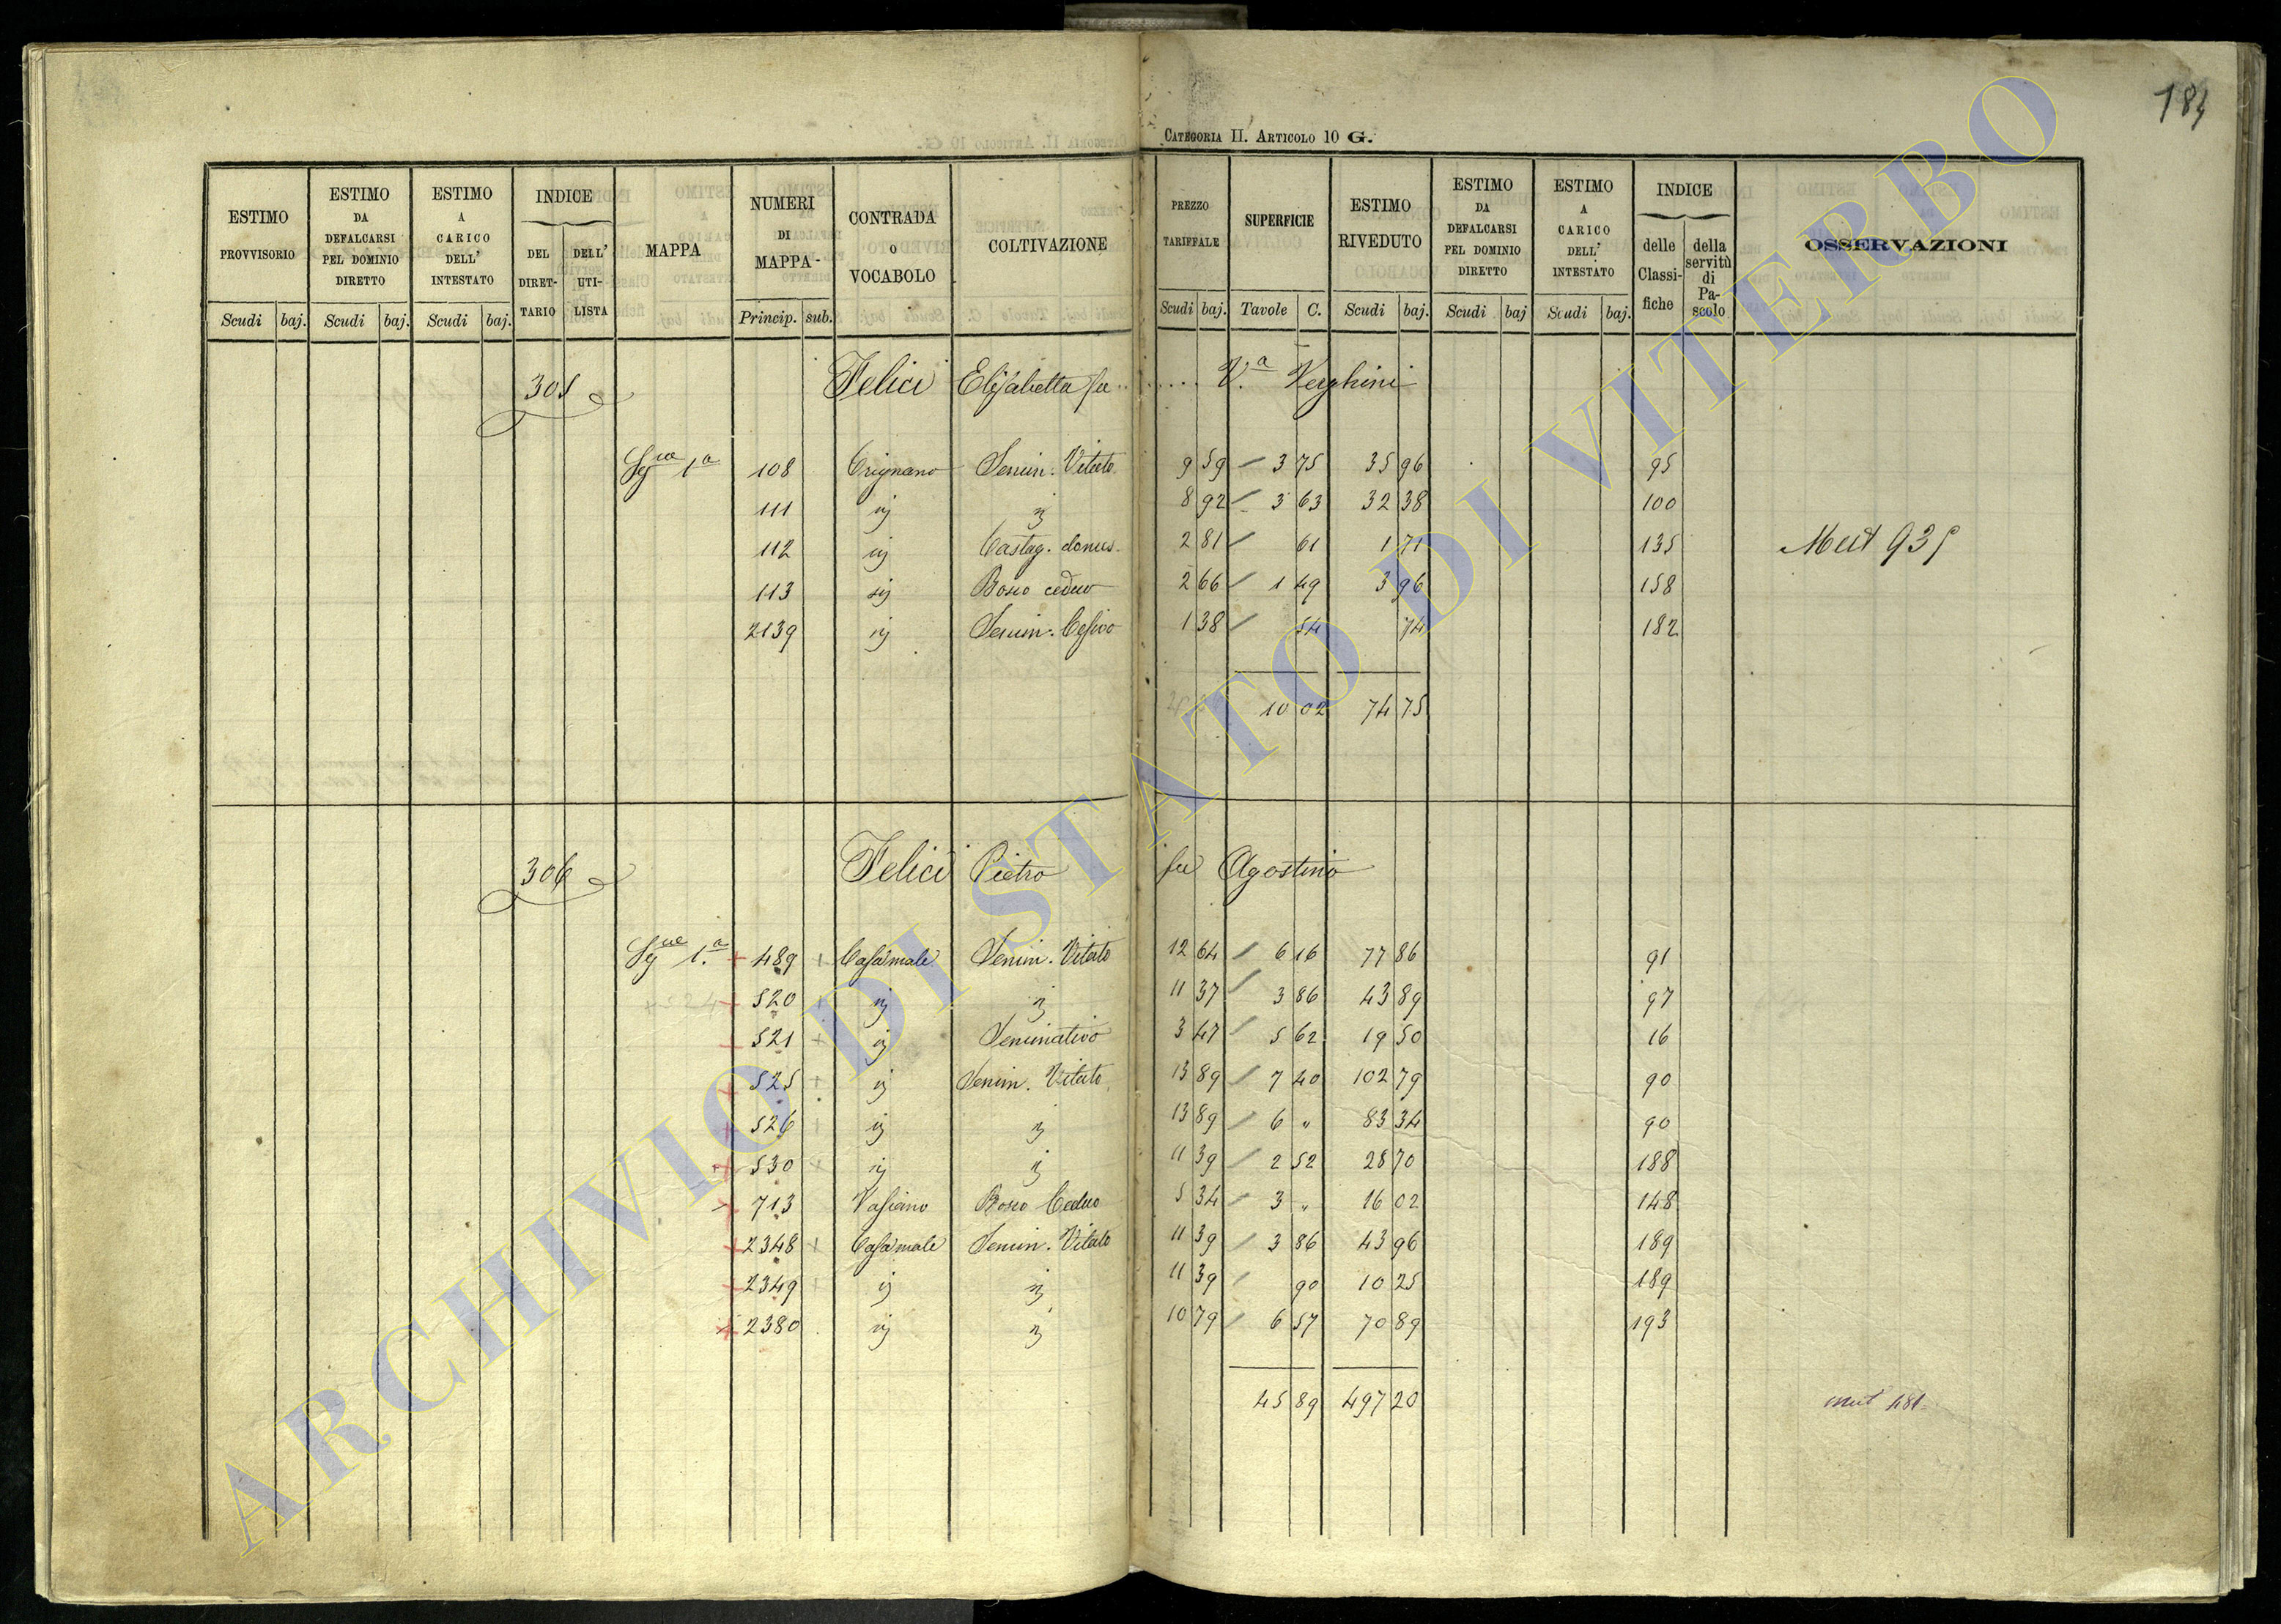 184
CATEGORIA II. ARTICOLO 10 G.
ESTIMO PROVVISORIO Scudi baj.
ESTIMO DA DEFALCARSI PEL DOMINIO DIRETTO Scudi baj.
ESTIMO A CARICO DELL' INTESTATO Scudi baj.
INDICE DEL DIRETTARIO DELL' UTILISTA
MAPPA
NUMERI DI MAPPA Princip. sub.
CONTRADA o VOCABOLO
COLTIVAZIONE
PREZZO TARIFFALE Scudi baj.
SUPERFICIE Tavole C.
ESTIMO RIVEDUTO Scudi baj.
ESTIMO DA DEFALCARSI PEL DOMINIO DIRETTO Scudi baj
ESTIMO A CARICO DELL' INTESTATO Scudi baj.
INDICE delle Classifiche della servitù di Pascolo
OSSERVAZIONI
305 Felici Elisabetta fu ...... V.a Verghini
1a 108 Crignano Semin. Vitato 9 59 3 75 35 96 95
111 ij ij 8 92 3 63 32 38 100
112 ij Castag. domes. 2 81 61 1 71 135 Mut 935
113 ij Bosco ceduo 2 66 1 49 3 96 158
2139 ij Semin. Cesivo 1 38 54 74 182
10 02 74 75
306 Felici Pietro fu Agostino
1.a 489 Casamale Semin. Vitato 12 64 6 16 77 86 91
+ 524 520 ij ij 11 37 3 86 43 89 97
521 ij Seminativo 3 47 5 62 19 50 16
525 ij Semin. Vitato 13 89 7 40 102 79 90
526 ij ij 13 89 6 " 83 34 90
530 ij ij 11 39 2 52 28 70 188
713 Vasiano Bosco Ceduo 5 34 3 " 16 02 148
2348 Casamale Semin. Vitato 11 39 3 86 43 96 189
2349 ij ij 11 39 90 10 25 189
2380 ij ij 10 79 6 57 70 89 193
45 89 497 20 mut 481
ARCHIVIO DI STATO DI VITERBO